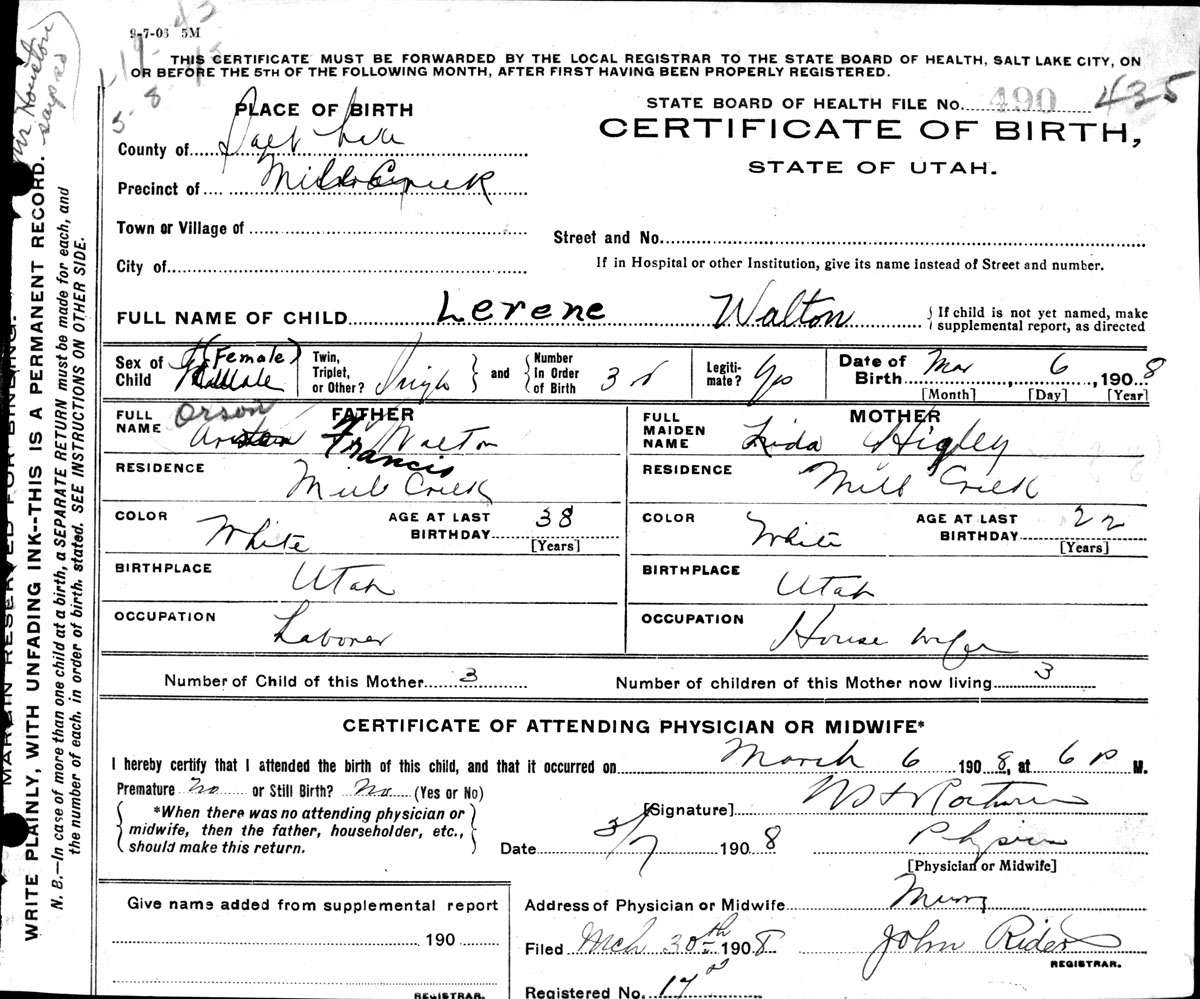 9-7-06 5M
THIS CERTIFICATE MUST BE FORWARDED BY THE LOCAL REGISTRAR TO THE STATE BOARD OF HEALTH, SALT LAKE CITY, ON
OR BEFORE THE 5TH OF THE FOLLOWING MONTH, AFTER FIRST HAVING BEEN PROPERLY REGISTERED.
PLACE OF BIRTH
STATE BOARD OF HEALTH FILE No. 490 435
CERTIFICATE OF BIRTH,
STATE OF UTAH.
County of Salt Lake
Precinct of Mill Creek
Town or Village of
Street and No.
City of
If in Hospital or other Institution, give its name instead of Street and number.
FULL NAME OF CHILD Lerene Walton
{ If child is not yet named, make
supplemental report, as directed
Sex of Child (Female)
Twin, Triplet, or Other? Single } and { Number In Order of Birth 3d
Legitimate? Yes
Date of Birth Mar 6, 1908
[Month] [Day] [Year]
FATHER
FULL NAME Orson Francis Walton
RESIDENCE Mill Creek
COLOR White
AGE AT LAST BIRTHDAY 38
[Years]
BIRTHPLACE Utah
OCCUPATION Laborer
MOTHER
FULL MAIDEN NAME Lida Higley
RESIDENCE Mill Creek
COLOR White
AGE AT LAST BIRTHDAY 22
[Years]
BIRTHPLACE Utah
OCCUPATION House wife
Number of Child of this Mother 3
Number of children of this Mother now living 3
CERTIFICATE OF ATTENDING PHYSICIAN OR MIDWIFE*
I hereby certify that I attended the birth of this child, and that it occurred on March 6 1908, at 6 P M.
Premature? No or Still Birth? No (Yes or No)
{ *When there was no attending physician or
midwife, then the father, householder, etc.,
should make this return. }
[Signature]
Date 3/7 1908
Physician
[Physician or Midwife]
Give name added from supplemental report
190
REGISTRAR.
Address of Physician or Midwife Murray
Filed Mch 30th 1908 John Rider
REGISTRAR.
Registered No. 17
MARGIN RESERVED FOR BINDING.
WRITE PLAINLY, WITH UNFADING INK--THIS IS A PERMANENT RECORD.
N. B.—In case of more than one child at a birth, a SEPARATE RETURN must be made for each, and
the number of each, in order of birth, stated. SEE INSTRUCTIONS ON OTHER SIDE.